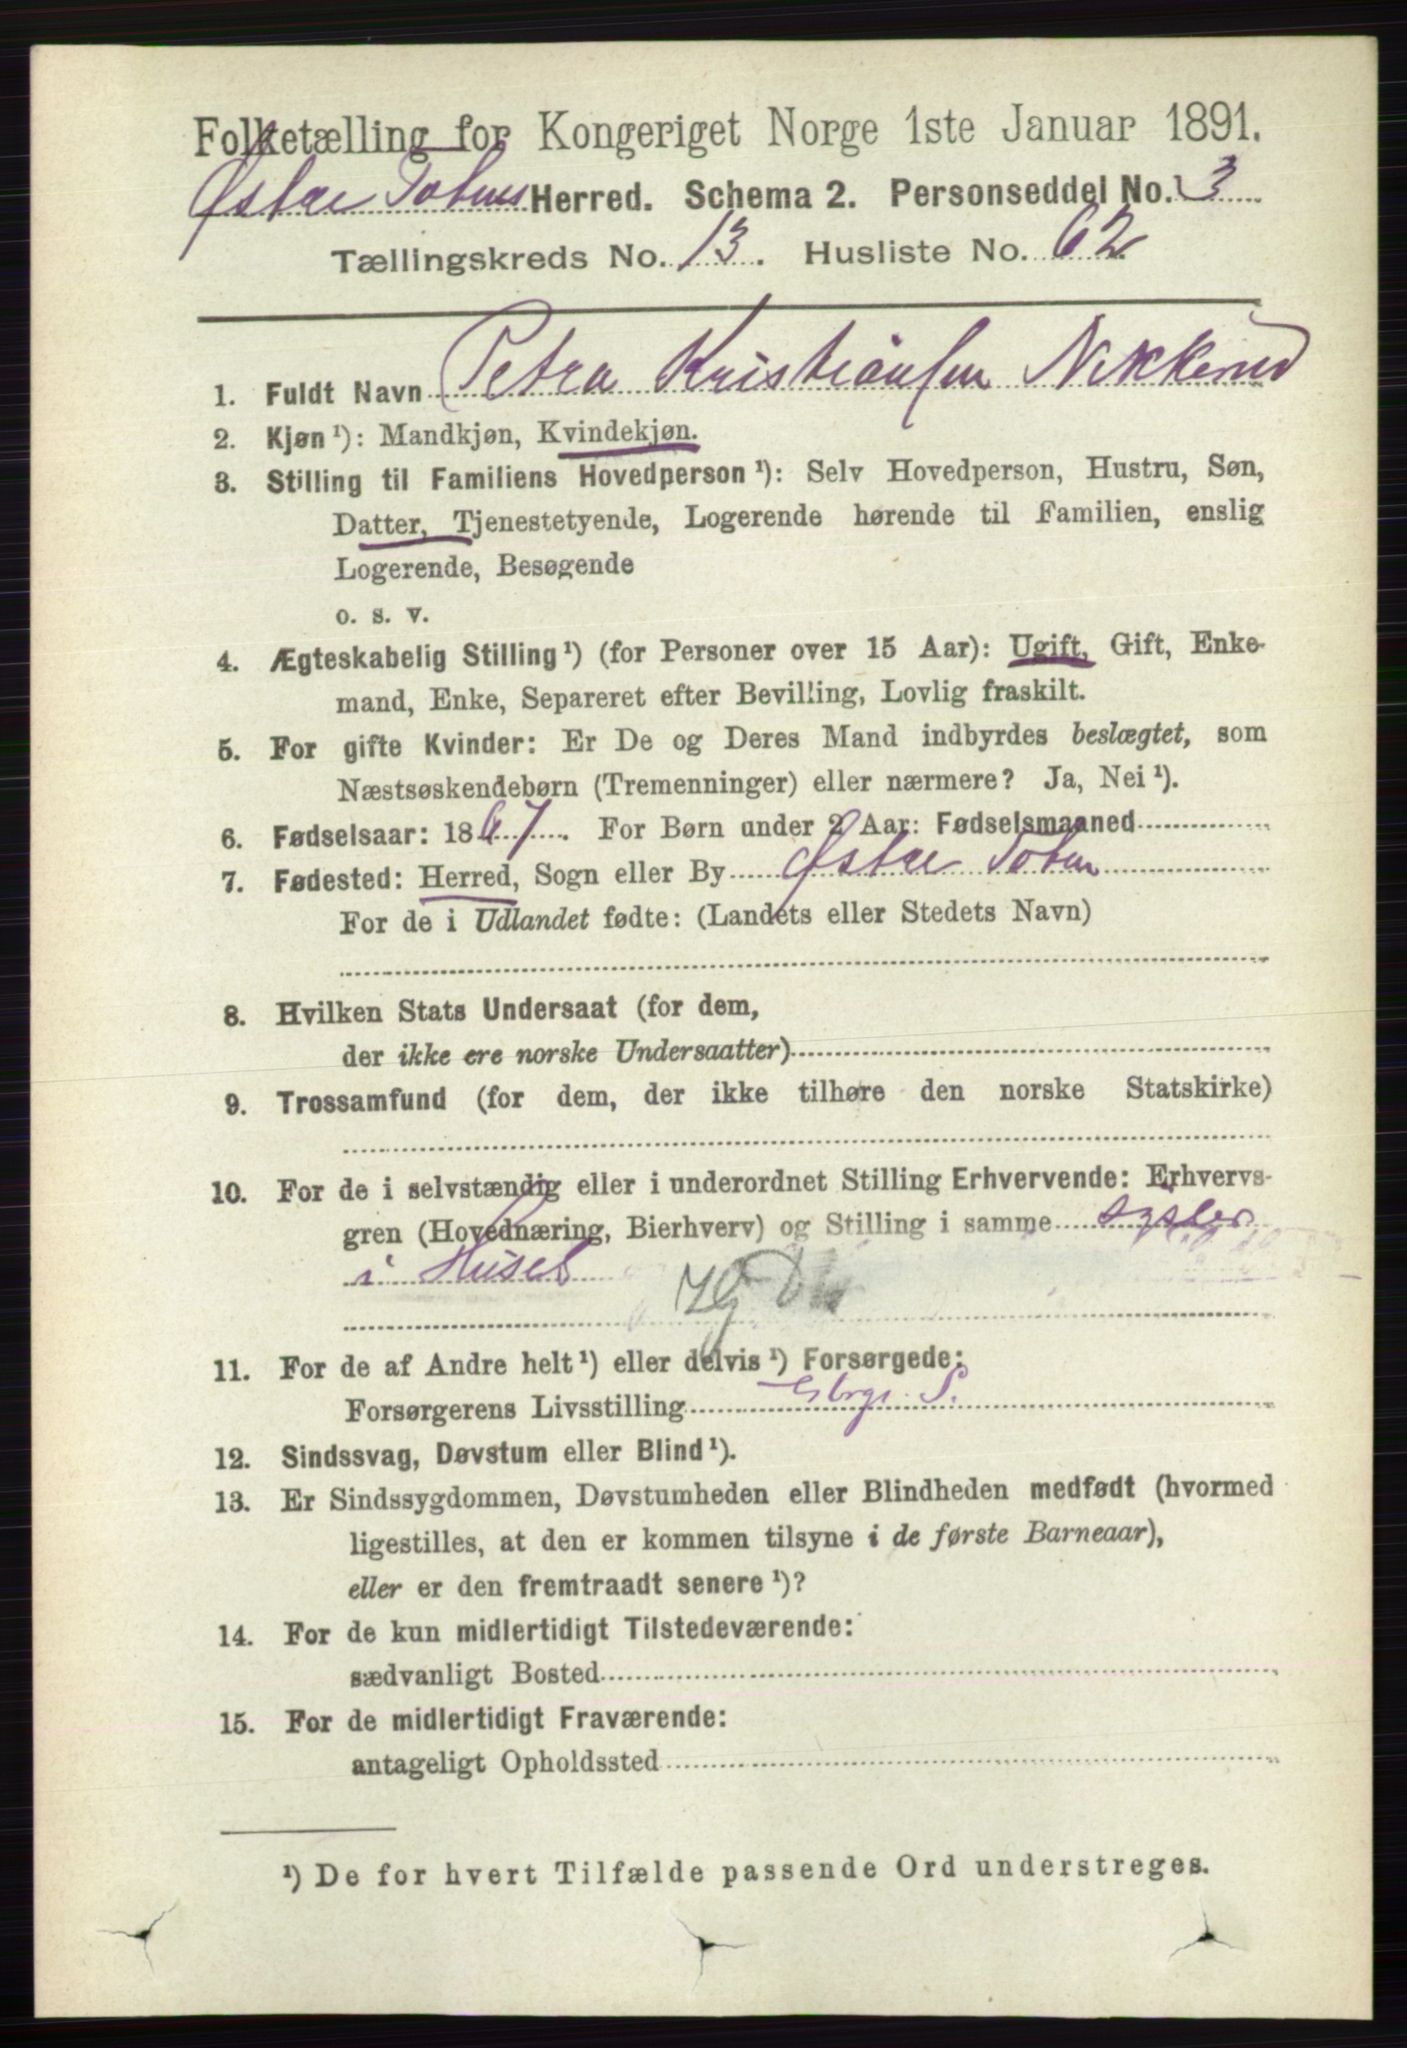 Folketælling for Kongeriget Norge 1ste Januar 1891.
Østre Totens Herred. Schema 2. Personseddel No. 3
Tællingskreds No. 13. Husliste No. 62
1. Fuldt Navn Petra Kristiansen Nikkerud
2. Kjøn ¹): Mandkjøn, Kvindekjøn.
3. Stilling til Familiens Hovedperson ¹): Selv Hovedperson, Hustru, Søn,
Datter, Tjenestetyende, Logerende hørende til Familien, enslig
Logerende, Besøgende
o. s. v.
4. Ægteskabelig Stilling ¹) (for Personer over 15 Aar): Ugift, Gift, Enke-
mand, Enke, Separeret efter Bevilling, Lovlig fraskilt.
5. For gifte Kvinder: Er De og Deres Mand indbyrdes beslægtet, som
Næstsøskendebørn (Tremenninger) eller nærmere? Ja, Nei ¹).
6. Fødselsaar: 1867. For Børn under 2 Aar: Fødselsmaaned
7. Fødested: Herred, Sogn eller By Østre Toten
For de i Udlandet fødte: (Landets eller Stedets Navn)
8. Hvilken Stats Undersaat (for dem,
der ikke ere norske Undersaatter)
9. Trossamfund (for dem, der ikke tilhøre den norske Statskirke)
10. For de i selvstændig eller i underordnet Stilling Erhvervende: Erhvervs-
gren (Hovednæring, Bierhverv) og Stilling i samme sysler
i Huset
11. For de af Andre helt ¹) eller delvis ¹) Forsørgede:
Forsørgerens Livsstilling Gbrgr. S.
12. Sindssvag, Døvstum eller Blind ¹).
13. Er Sindssygdommen, Døvstumheden eller Blindheden medfødt (hvormed
ligestilles, at den er kommen tilsyne i de første Barneaar),
eller er den fremtraadt senere ¹)?
14. For de kun midlertidigt Tilstedeværende:
sædvanligt Bosted
15. For de midlertidigt Fraværende:
antageligt Opholdssted
¹) De for hvert Tilfælde passende Ord understreges.